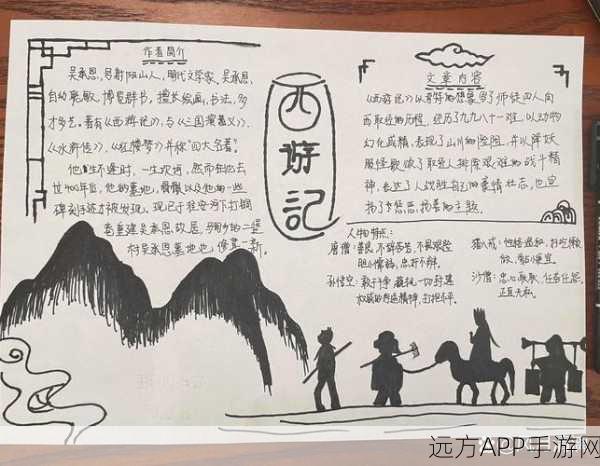 作者简介
吴承恩,号射阳山人,明代文学家、吴承恩,
自幼聪敏,博览群书,擅长绘画,书法,多
才多艺。著有《西游记》,与《三国演义》、
《水浒传》、《红楼梦》并称“四大名著”。
他生不逢时,一生坎坷,然而在他去
世400年后,他的墓地,
碑刻手迹才被发现。现已于淮安河下打铜
巷重建吴承恩故居,
村吴承恩墓地也修葺一新。
西游記
文章内容
《西游记》以奇特的想象写了师徒四人向
西取经的历程,经历九九八十一难,以动物
幻化成精,表现了山川的险阻,并以降妖
服怪歌颂了取经人排除艰难的战斗精
神,表达了人战胜自己的豪情壮志,也宣
扬了惩恶扬善的主题。
人物特点:
唐僧:善良,不辞辛苦,不畏艰险
胆小懦弱,忠奸不辨。
孙悟空:敢于斗争,藐视一切封建
权威的叛逆精神,打抱不平。
猪八戒:性格温和,好吃懒
做,贪小便宜。
沙僧:忠心耿耿,任劳任怨,
正直无私。
远方APP手游网